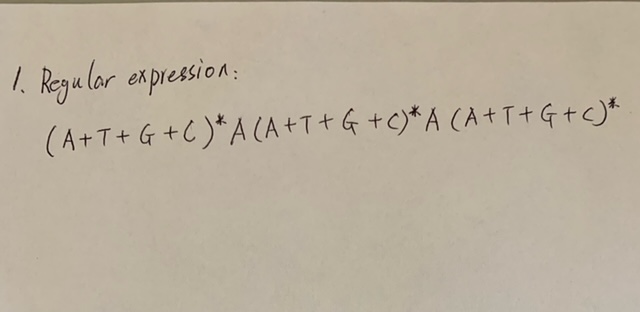 1. Regular expression:
(A+T+G+C)*A(A+T+G+C)*A(A+T+G+C)*